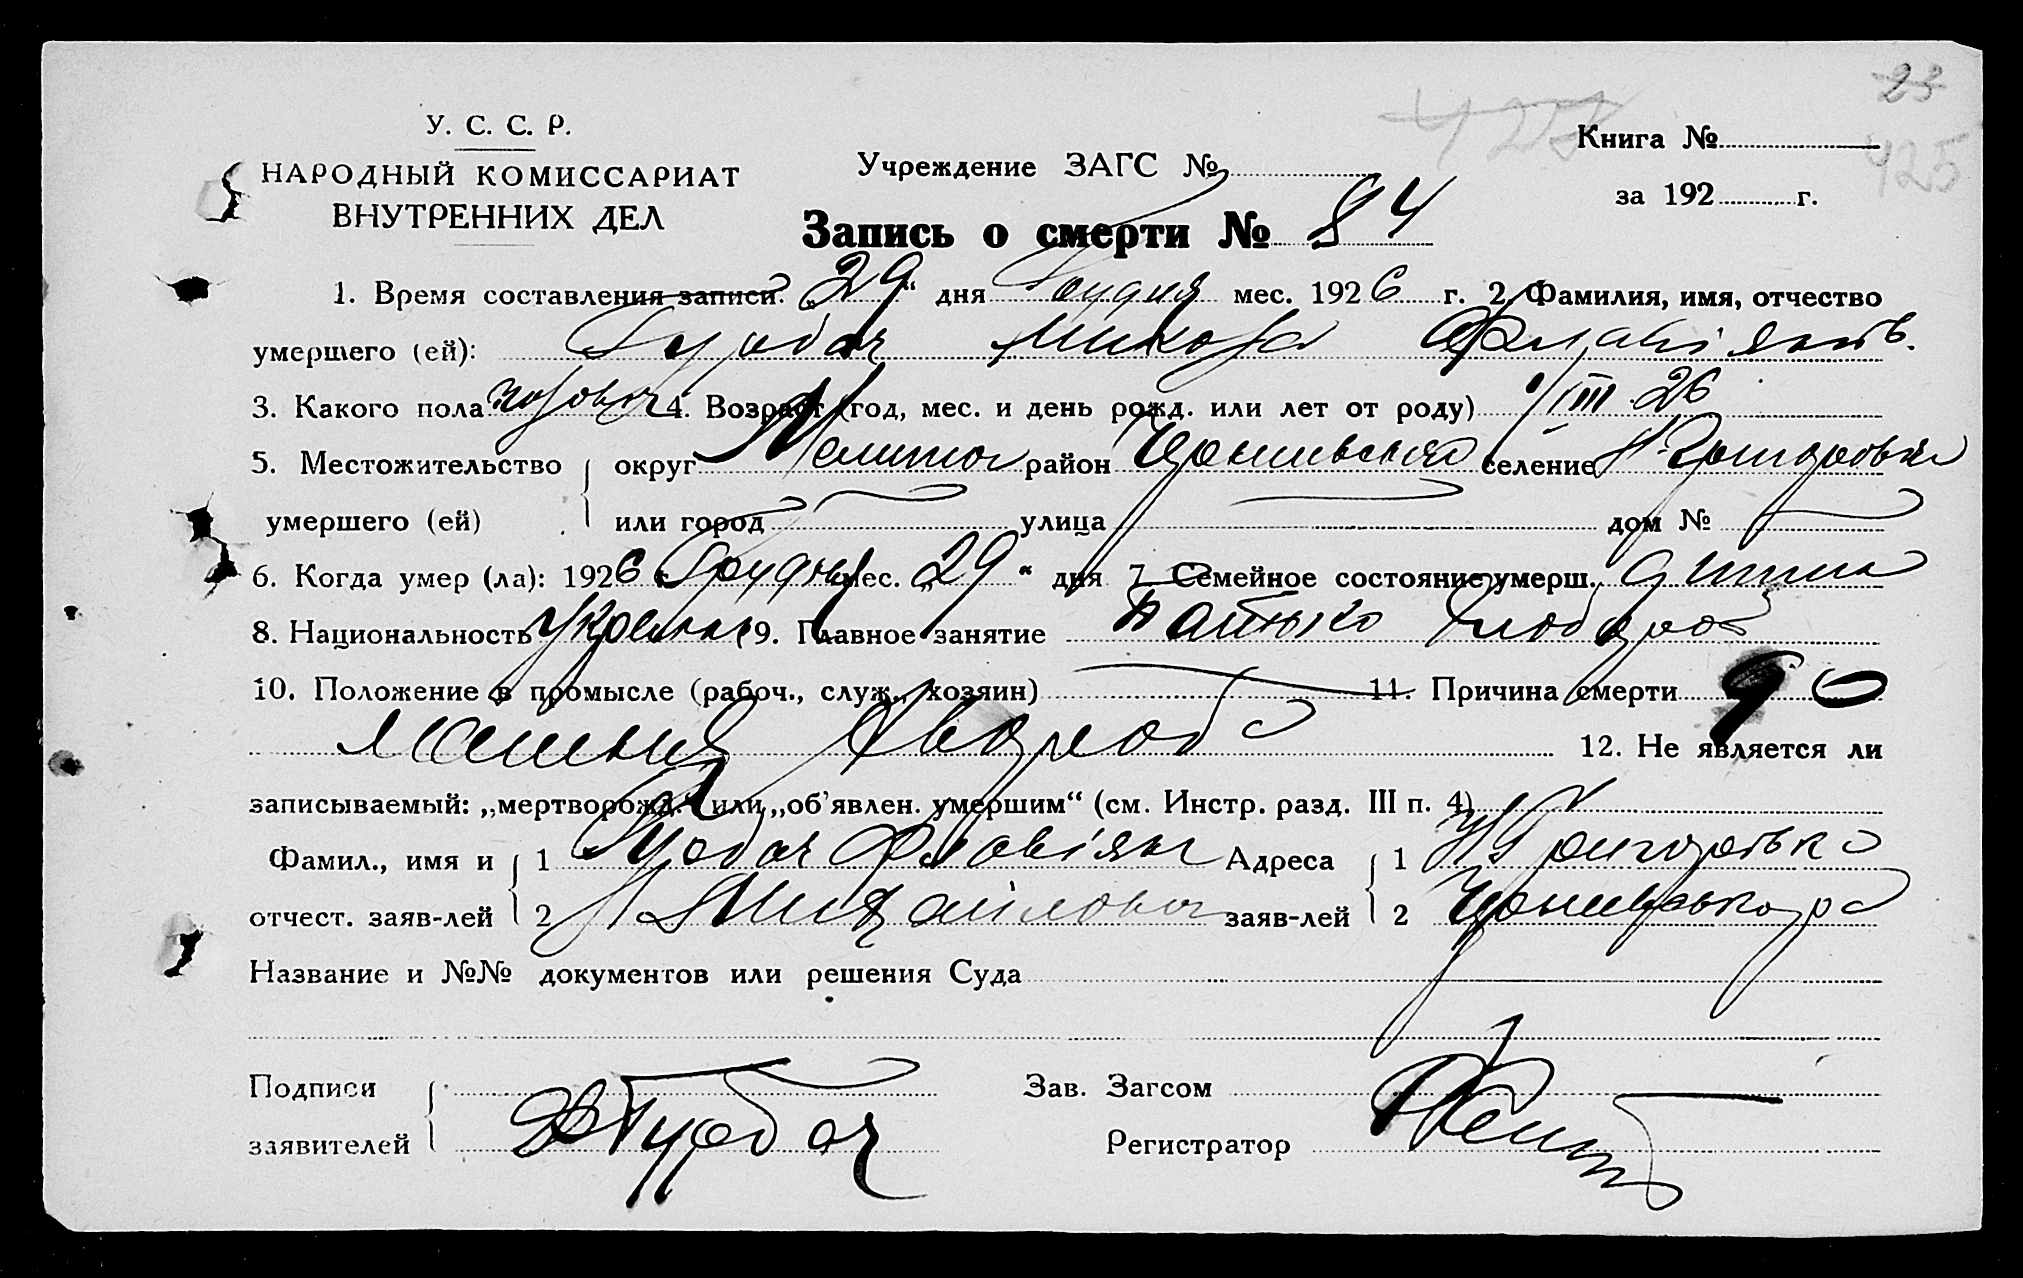 23
У. С. С. Р.
НАРОДНЫЙ КОМИССАРИАТ
ВНУТРЕННИХ ДЕЛ
Учреждение ЗАГС №
Книга №
425
за 192 г.
Запись о смерти № 84
1. Время составления записи: „29“ дня Грудня мес. 1926 г. 2. Фамилия, имя, отчество
умершего (ей): Гурбач Микола Флавіянов.
3. Какого пола чоловіч 4. Возраст (год, мес. и день рожд. или лет от роду) 1/III 26
5. Местожительство округ Мелитоп район селение Н-Григоровка
умершего (ей) или город улица дом №
6. Когда умер (ла): 1926 г. Грудня мес. „29“ дня 7. Семейное состояние умерш. дитина
8. Национальность Украинец 9. Главное занятие батько хлібороб
10. Положение в промысле (рабоч., служ., хозяин) 11. Причина смерти
хвороба 12. Не является ли
записываемый: „мертворожд.“ или „об'явлен. умершим“ (см. Инстр. разд. III п. 4)
Фамил., имя и 1 Гурбач Флавіян Адреса 1 Н Григоровка
отчест. заяв-лей 2 Михайлович заяв-лей 2
Название и №№ документов или решения Суда
Подписи Зав. Загсом
заявителей Ф Гурбач Регистратор